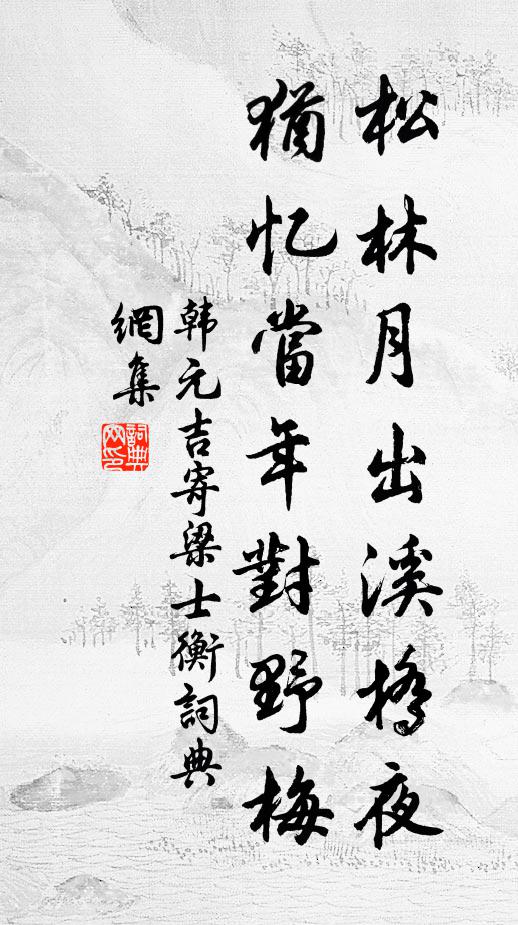 松林月出溪橋夜
猶忆當年對野梅
韩元吉寄梁士衡詞典
網集
詞典
网印